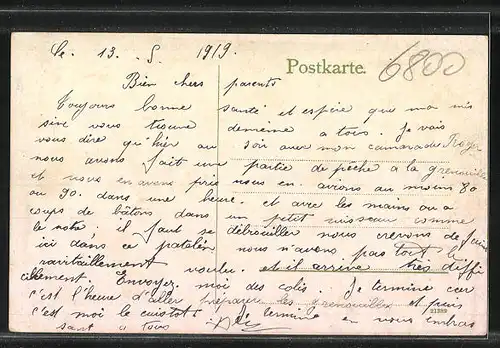 le. 13. 5. 1919.
Postkarte.
6800
Bien chers parents
Toujours bonne santé et espère que ma mis
sive vous trouve demême a tous. Je vais
vous dire qu'hier au soir avec mon camarade
nous avons fait une partie de pêche a la grenouille
et nous en avons pris nous en avions au moins 80
ou 90. dans une heure. et avec les mains ou a
coups de bâtons dans un petit ruisseau comme
le notre, il faut se débrouiller nous crevons de faim
ici dans ce nous n'avons pas tout le
ravitaillement voulu. et il arrive très diffi
cilement Envoyez. moi des colis. Je termine car
c'est l'heure d'aller préparer les grenouilles et puis
c'est moi le cuistot Je termine en vous embras
sant a tous
21389